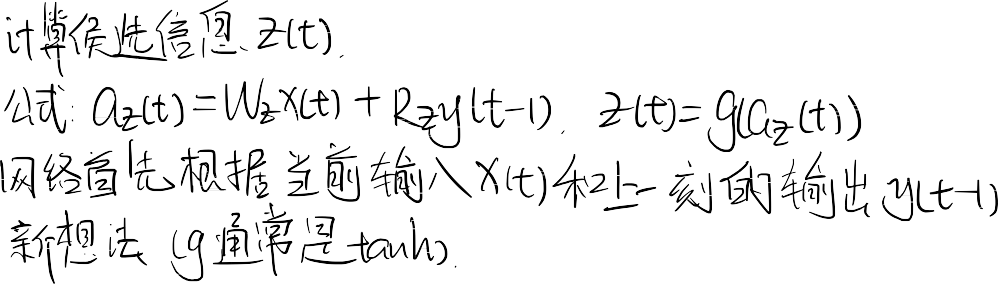 计算候选信息 z(t).
公式: a_z(t) = W_z x(t) + R_z y(t-1). z(t) = g(a_z(t))
网络首先根据当前输入 x(t) 和上一刻的输出 y(t-1)
新想法 (g 通常是 tanh).